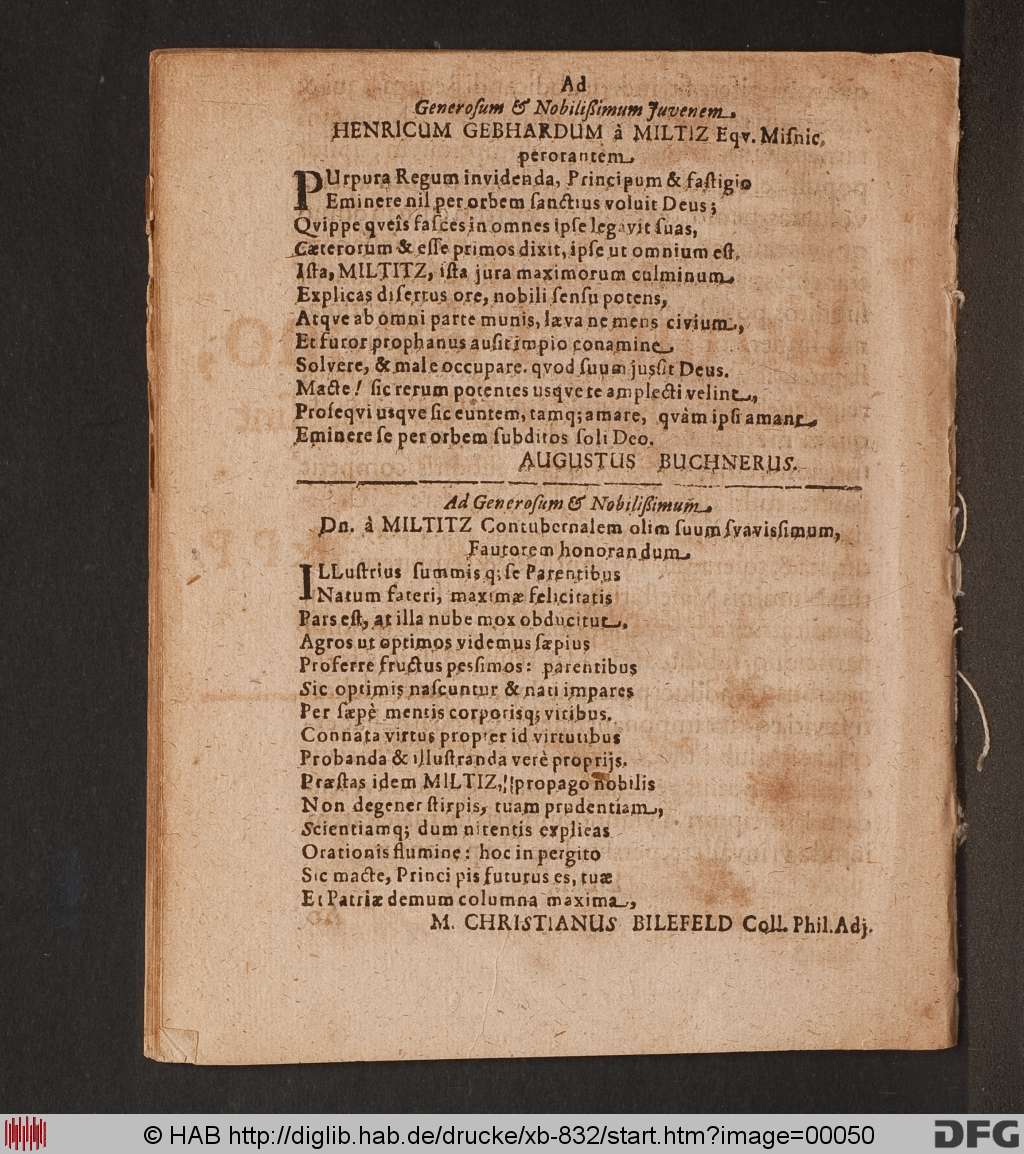 Ad
Generoſum & Nobilißimum Juvenem.
HENRICUM GEBHARDUM à MILTIZ Eqv. Miſnic.
perorantem.
PUrpura Regum invidenda, Principum & faſtigio
Eminere nil per orbem ſanctius voluit Deus;
Qvippe qveîs faſces in omnes ipſe legavit ſuas,
Cæterorum & eſſe primos dixit, ipſe ut omnium eſt.
Iſta, MILTITZ, iſta jura maximorum culminum
Explicas diſertus ore, nobili ſenſu potens,
Atqve ab omni parte munis, læva ne mens civium,
Et furor prophanus auſit impio conamine
Solvere, & male occupare. qvod ſuum juſſit Deus.
Macte! ſic rerum potentes usqve te amplecti velint,
Proſeqvi usqve ſic euntem, tamq; amare, qvàm ipſi amant
Eminere ſe per orbem ſubditos ſoli Deo.
AUGUSTUS BUCHNERUS.
Ad Generoſum & Nobilißimum.
Dn. à MILTITZ Contubernalem olim ſuum ſvavissimum,
Fautorem honorandum
ILLustrius ſummis q; ſe Parentibus
Natum fateri, maximæ felicitatis
Pars eſt, at illa nube mox obducitur.
Agros ut optimos videmus ſæpius
Proferre fructus pessimos: parentibus
Sic optimis naſcuntur & nati impares
Per ſæpè mentis corporisq; viribus.
Connata virtus propter id virtutibus
Probanda & illuſtranda verè proprijs.
Præſtas idem MILTIZ, propago nobilis
Non degener ſtirpis, tuam prudentiam,
Scientiamq; dum nitentis explicas
Orationis flumine: hoc in pergito
Sic macte, Princi pis futurus es, tuæ
Et Patriæ demum columna maxima,
M. CHRISTIANUS BILEFELD Coll. Phil. Adj.
© HAB http://diglib.hab.de/drucke/xb-832/start.htm?image=00050
DFG